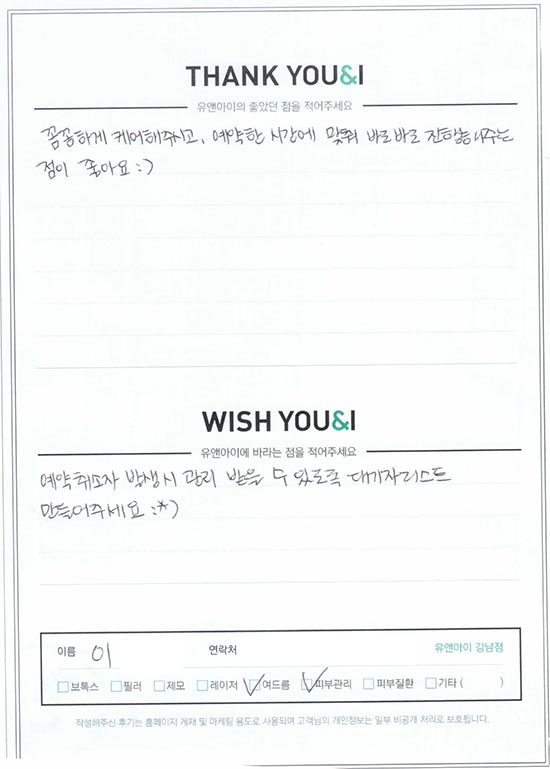 THANK YOU&I
유앤아이의 좋았던 점을 적어주세요
꼼꼼하게 케어해주시고, 예약한 시간에 맞춰 바로바로 진행해주는
점이 좋아요 :)
WISH YOU&I
유앤아이에 바라는 점을 적어주세요
예약취소자 발생시 관리 받을 수 있도록 대기자리스트
만들어주세요 :*)
이름 이 연락처 유앤아이 강남점
보톡스 필러 제모 레이저 여드름 피부관리 피부질환 기타 ( )
작성해주신 후기는 홈페이지 게재 및 마케팅 용도로 사용되며 고객님의 개인정보는 일부 비공개 처리로 보호됩니다.